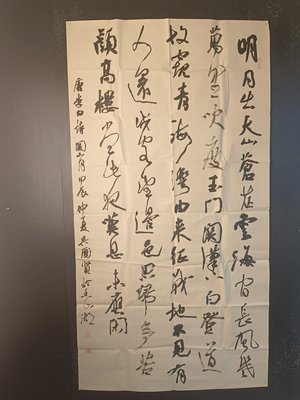 明月出天山蒼茫雲海間長風幾
萬里吹度玉門關漢下白登道
胡窺青海灣由來征戰地不見有
人還戍客望邊色思歸多苦
顏高樓當此夜嘆息未應閑
唐李白詩關山月甲辰仲夏吳國賢